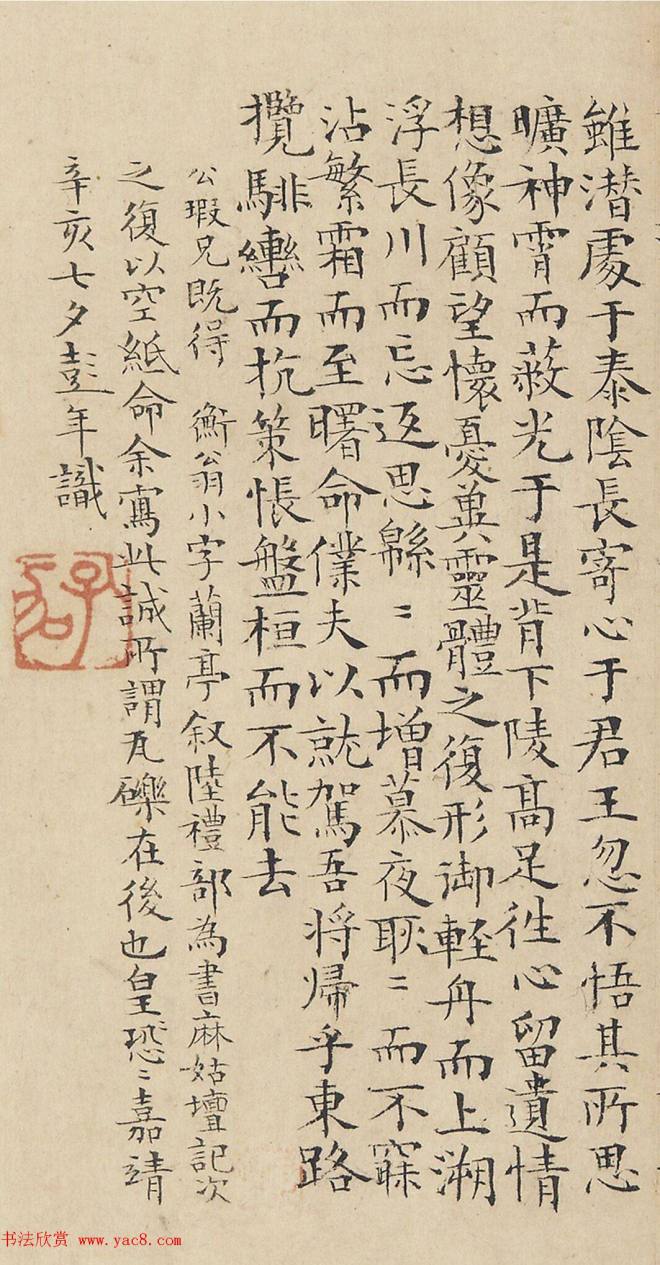 雖潜處于泰陰長寄心于君王忽不悟其所思
曠神宵而蔽光于是背下陵高足往心留遺情
想像顧望懷憂冀靈體之復形御輕舟而上溯
浮長川而忘返思緜〻而增慕夜耿〻而不寐
沾繁霜而至曙命僕夫以就駕吾将歸乎東路
攬騑轡而抗策悵盤桓而不能去
公瑕兄既得 衡翁小字蘭亭叙陸禮部為書麻姑壇記次
之復以空紙命余寫此誠所謂瓦礫在後也皇恐〻嘉靖
辛亥七夕彭年識
书法欣赏 www.yac8.com